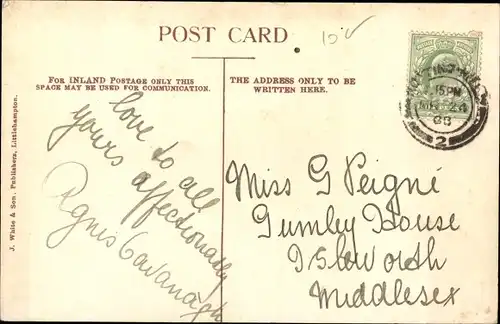 POST CARD
FOR INLAND POSTAGE ONLY THIS
SPACE MAY BE USED FOR COMMUNICATION.
THE ADDRESS ONLY TO BE
WRITTEN HERE.
J. White & Son, Publishers, Littlehampton.
love to all
yours affectionately
Agnis Cavanagh
Miss G Peigné
Gumley House
Isleworth
Middlesex
2